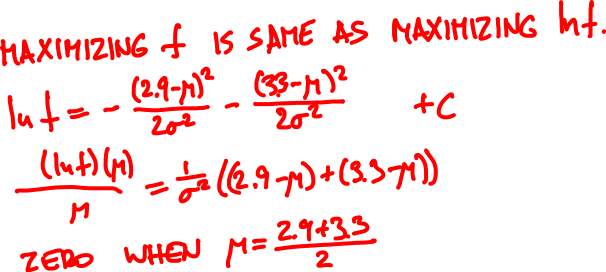 MAXIMIZING f IS SAME AS MAXIMIZING ln f.
ln f = - (2.9-μ)²/2σ² - (3.3-μ)²/2σ² + C
(ln f)(μ)/μ = 1/σ² ((2.9-μ)+(3.3-μ))
ZERO WHEN μ = 2.9+3.3/2